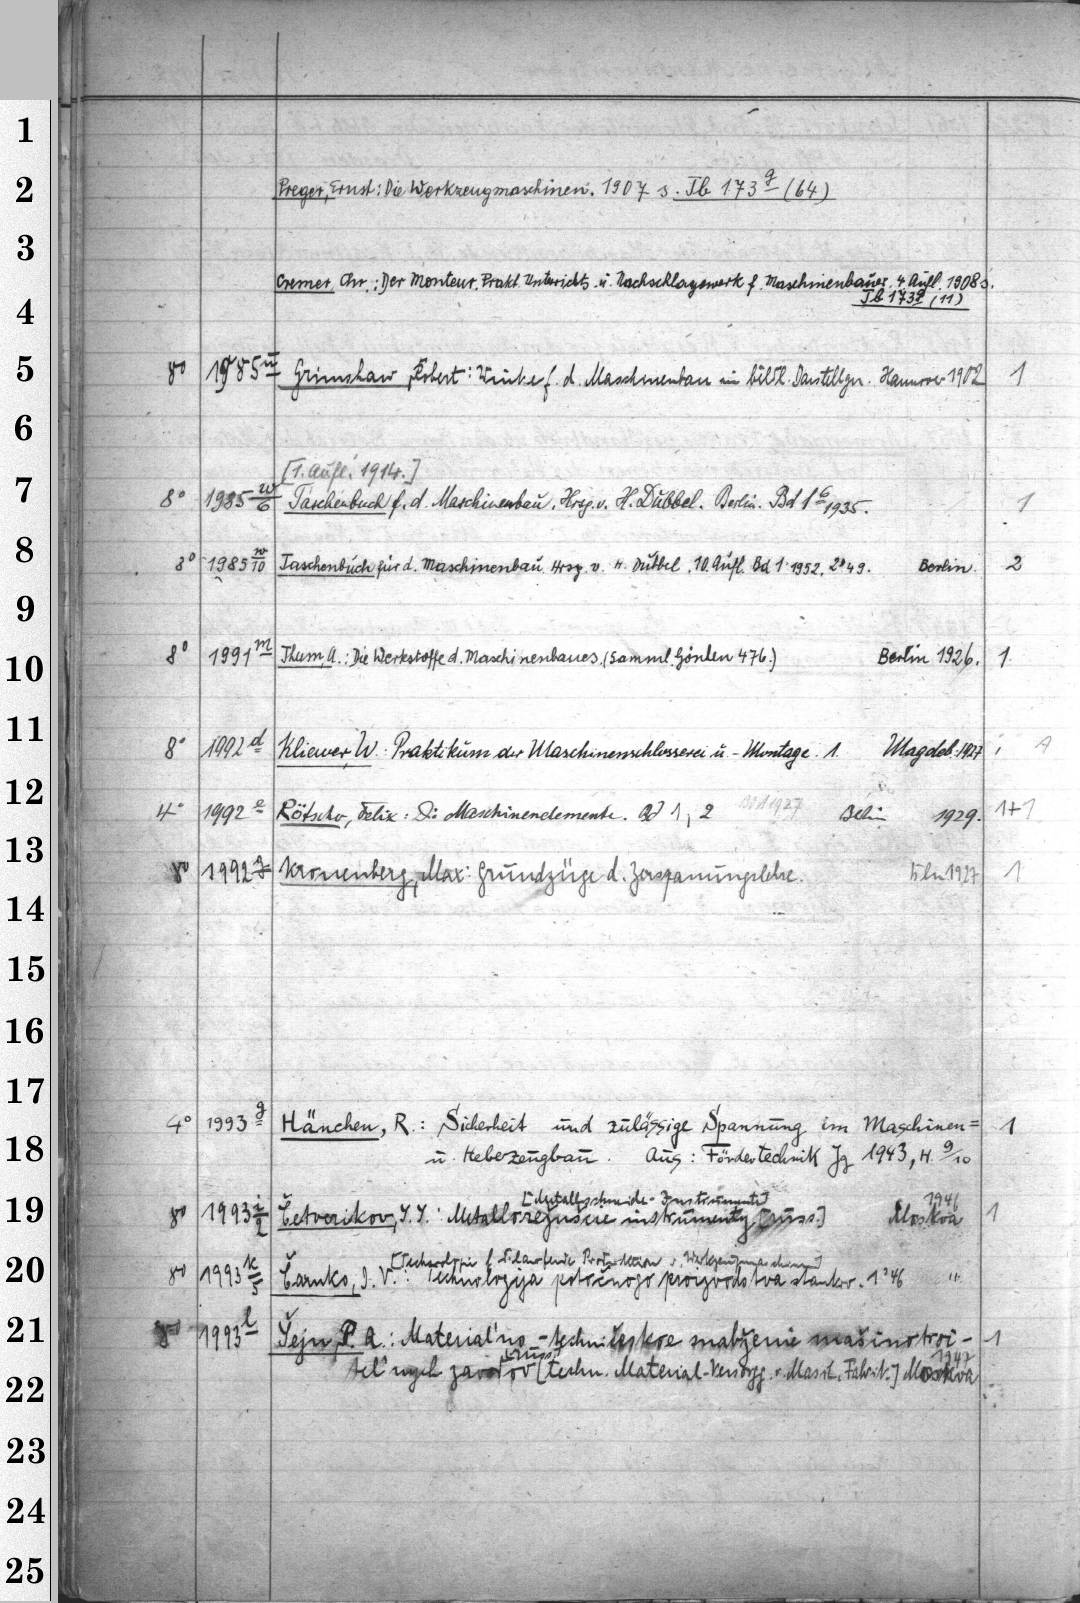 1
2
Preger, Ernst: Die Werkzeugmaschinen. 1907 s. Tb 173 g (64)
3
Cremer, Chr.: Der Monteur. Prakt. Unterrichts- u. Nachschlagewerk f. Maschinenbauer. 4. Aufl. 1908 s.
4
Tb 173 g (11)
5
8° 1985 u Grimshaw, Robert: Winke f. d. Maschinenbau in bildl. Darstellgn. Hannover 1902 1
6
[1. Aufl. 1914.]
7
8° 1985 w/6 Taschenbuch f. d. Maschinenbau. Hrsg. v. H. Dubbel. Berlin. Bd 1 6 1935. 1
8
8° 1985 w/10 Taschenbuch für d. Maschinenbau. Hrsg. v. H. Dubbel. 10. Aufl. Bd 1. 1952. 2 49. Berlin. 2
9
10
8° 1991 m Thum, A.: Die Werkstoffe d. Maschinenbaues. (Samml. Göschen 476.) Berlin 1926. 1
11
8° 1992 d Kliewer, W. Praktikum der Maschinenschlosserei u. -Montage. 1. Magdeb. 1927 1
12
4° 1992 e Rötscher, Felix: Die Maschinenelemente. Bd 1, 2 Bd 1 1927 Berlin 1929. 1+1
13
8° 1992 g Kronenberg, Max: Grundzüge d. Zerspanungslehre. Bln 1927 1
14
15
16
17
4° 1993 g Hänchen, R.: Sicherheit und zulässige Spannung im Maschinen=
18
u. Hebezeugbau. Aus: Fördertechnik Jg 1943, H. 9/10 1
[Metallschneide-Instrumente] 1946
19
8° 1993 i/2 Četverikov, S. S.: Metallorežuščie instrumenty [russ.] Moskva 1
20
8° 1993 k/5 Čarnko, D. V.: Technologija potočnogo proizvodstva stankov. 1946 "
21
8° 1993 l Šejn, P. A.: Material'no-techničeskoe snabženie mašinostroi- 1
[russ.] 1947
22
tel'nych zavodov [Techn. Material-Versorgg. Masch. Fabrik.] Moskva
23
24
25